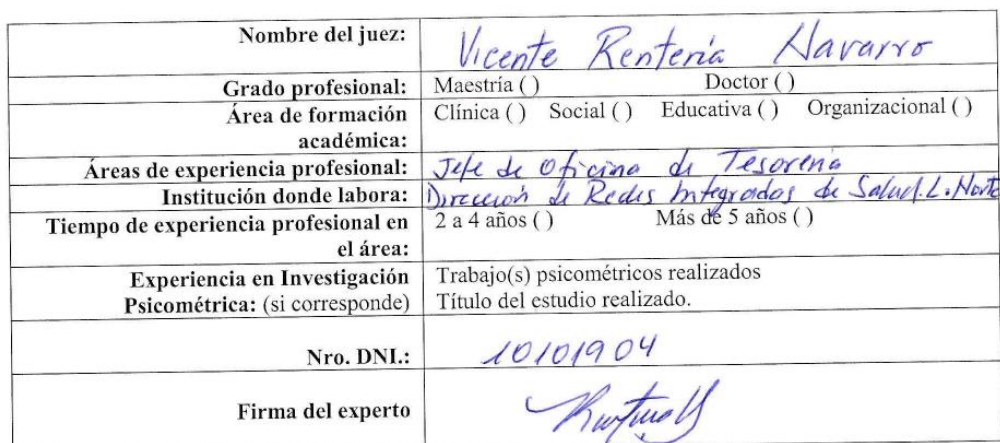 Nombre del juez: Vicente Rentería Navarro
Grado profesional: Maestría ( ) Doctor ( )
Área de formación académica: Clínica ( ) Social ( ) Educativa ( ) Organizacional ( )
Áreas de experiencia profesional: Jefe de Oficina de Tesorería
Institución donde labora: Dirección de Redes Integradas de Salud. L. Norte
Tiempo de experiencia profesional en el área: 2 a 4 años ( ) Más de 5 años ( )
Experiencia en Investigación Psicométrica: (si corresponde) Trabajo(s) psicométricos realizados
Título del estudio realizado.
Nro. DNI.: 10101904
Firma del experto